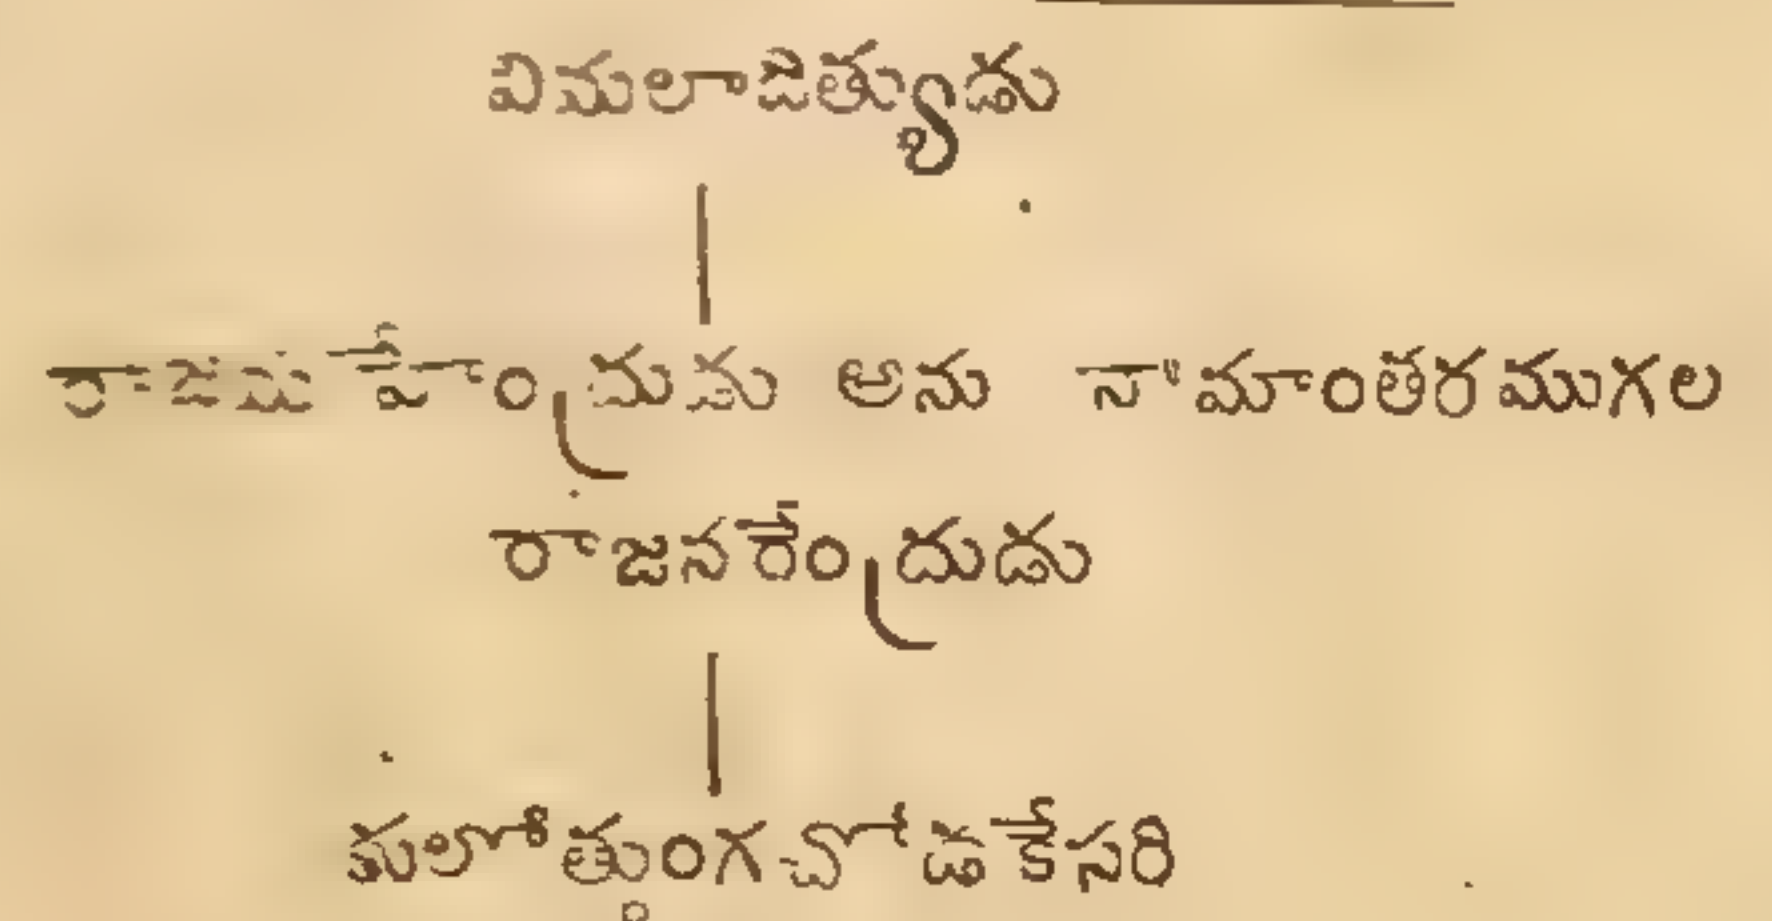 విమలాదిత్యుడు
రాజమహేంద్రుడు అను నామాంతరముగల
రాజనరేంద్రుడు
కులోత్తుంగచోడకేసరి